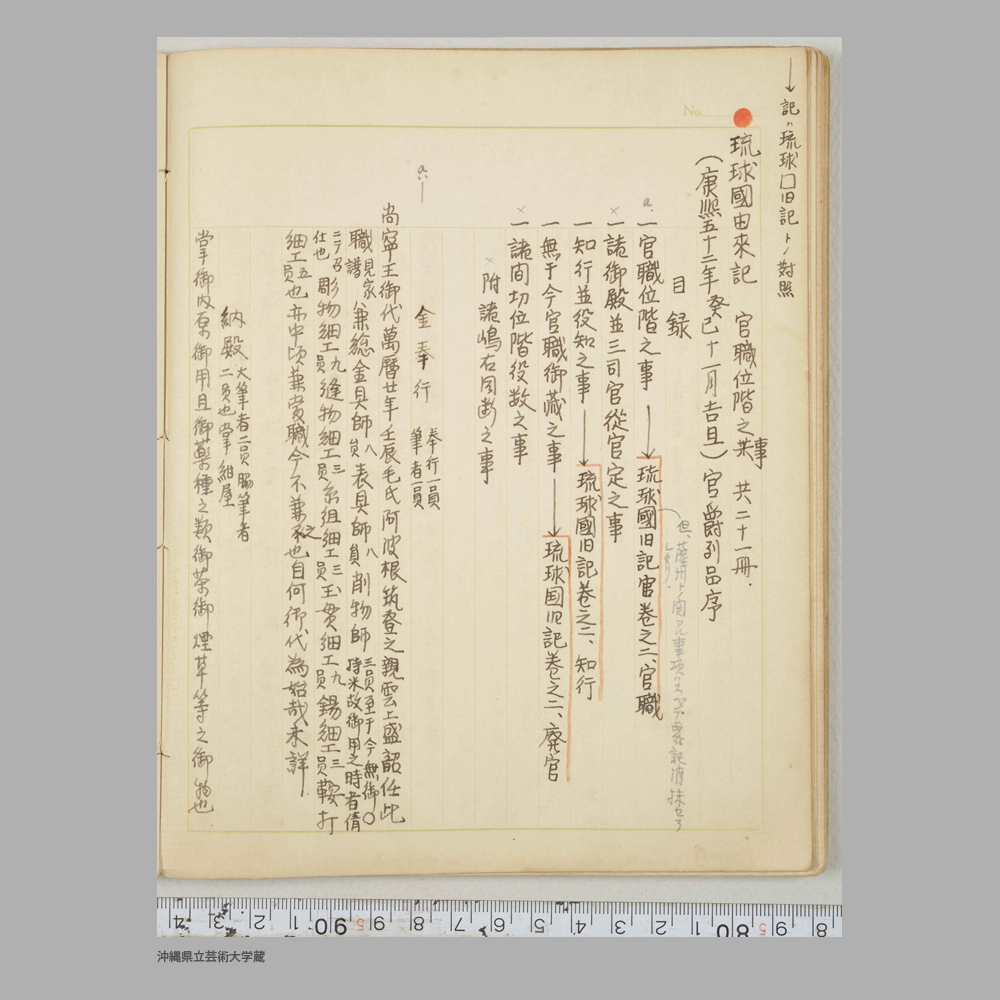 →記ハ琉球口旧記トノ対照
琉球國由來記 官職位階之事 共二十一冊.
(康熙五十二年癸巳十一月吉旦)官爵列品序
目録
a. 一官職位階之事→琉球國旧記卷之二、官職
× 一諸御殿並三司官從官定之事
一知行並役知之事→琉球國旧記卷之二、知行
一無于今官職御藏之事→琉球国旧記卷之二、廃官
× 一諸間切位階役数之事
× 附諸嶋右同断之事
金奉行 奉行一員
筆者一員
尚寧王御代萬曆廿年壬辰毛氏阿波根筑登之親雲上盛韶任此
職見家譜兼総金具師八員表具師八員削物師三員至于今無御○
持米故御用之時者倩
二テ召仕也彫物細工九員縫物細工三員糸組細工三員玉貫細工九員錫細工三員鞍打
細工五員也亦中頃兼當職今不兼之也自何御代為始哉未詳.
納殿 大筆者二員脇筆者
二員也掌紺屋
掌御内原御用且御藥種之類御茶御煙草等之御物也
No.
4 3 2 1 90 9 8 7 6 5 4 3 2 1 80 9 8
沖縄県立芸術大学蔵